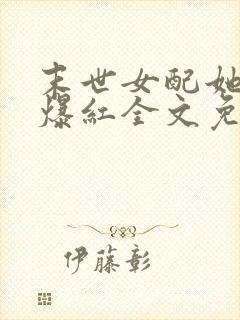 末世女配她
爆红全文免
伊藤彰